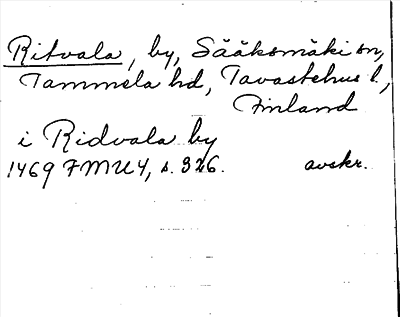 Ritvala, by, Sääksmäki sn,
Tammela hd, Tavastehus l.,
Finland
i Ridvala by
1469 FMU 4, s. 326. avskr.